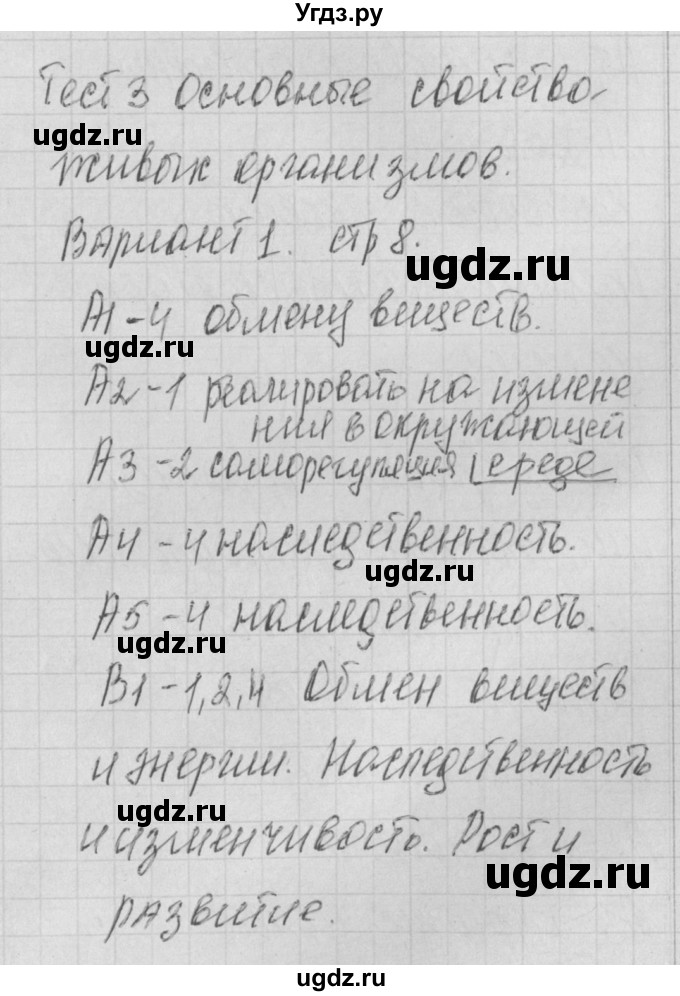 Угдз.ру
Тест 3 Основные свойства
ugdz.ru
живых организмов.
Вариант 1. стр 8.
ugdz.ru
А1-4 обмену веществ.
ugdz.ru
А2-1 реагировать на измене
ния в окружающей
А3-2 саморегуляция среде
А4-4 наследственность.
ugdz.ru
А5-4 наследственность.
ugdz.ru
В1-1,2,4 Обмен веществ
ugdz.ru
и энергии. Наследственность
ugdz.ru
и изменчивость. Рост и
ugdz.ru
развитие.
ugdz.ru